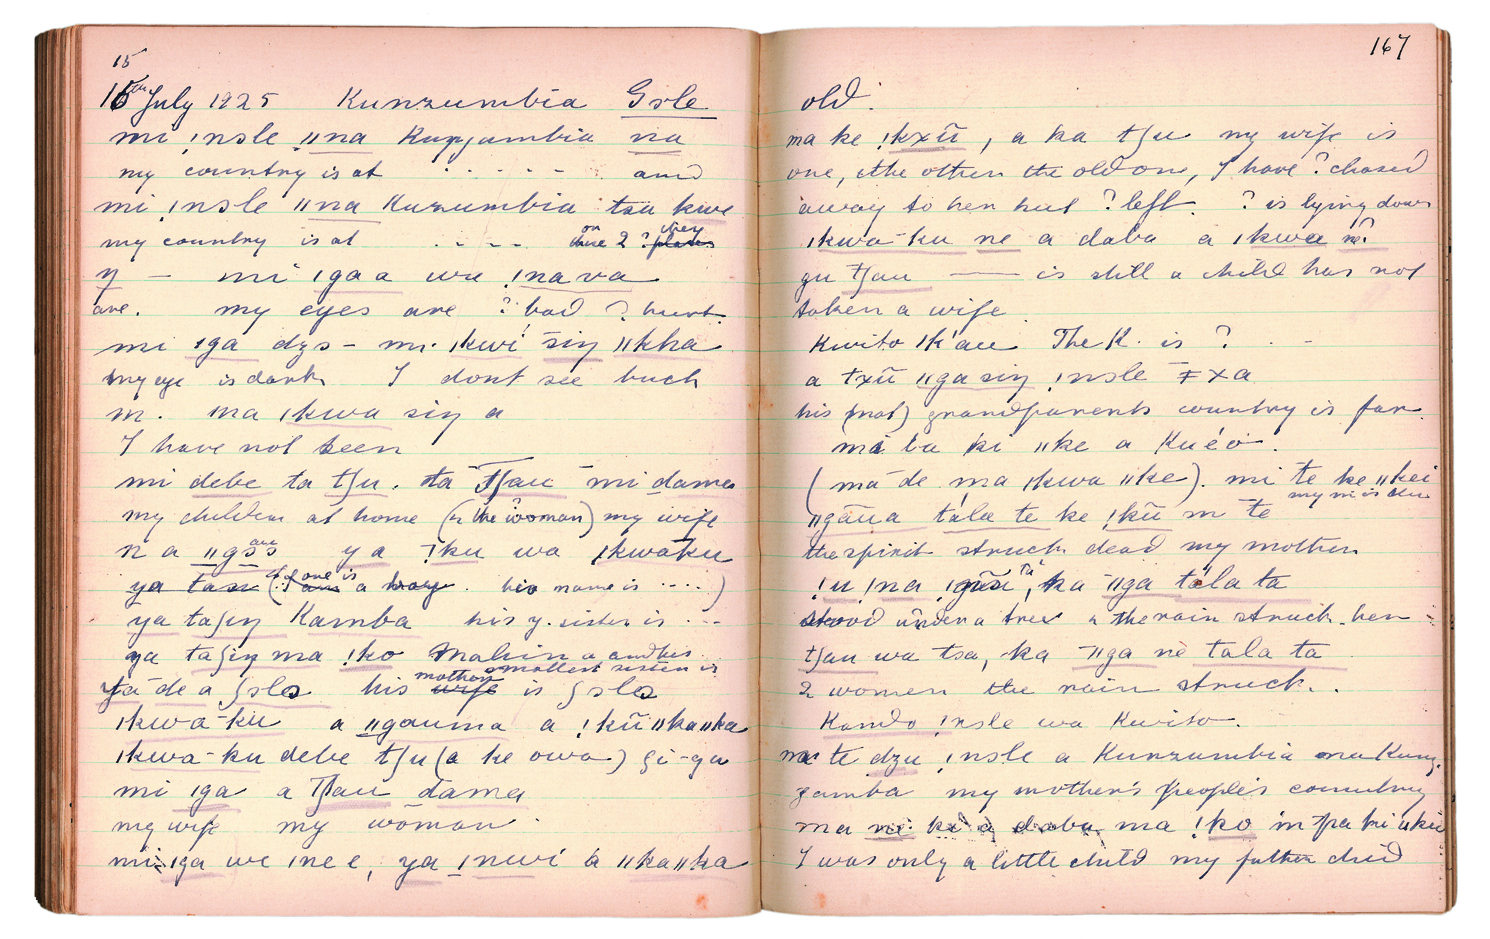 15
15th July 1925 Kunzumbia Gsle
mi ǃnsle ǁna Kuŋgambia na
my country is at . . . . . . and
mi ǃnsle ǁna Kuzumbia tsa kwe
my country is at . . - - on 2 ? they
ŋ — mi ǀga a wa ǃnava
are. my eyes are ? bad ? hurt.
mi ǀga dzɔ - m. ǀkwi siŋ ǁkha
my eye is dark I dont see buch
m. ma ǀkwa siŋ a
I have not seen
mi debe ta tʃu. ta tʃau mi dama
my children at home (& the woman) my wife
n a ǁgɔɔ au ya ǃku wa ǀkwaku
ya tasu (if one is a boy. his name is ....)
ya taʃiŋ Kamba his y. sister is . --
ya taʃiŋ ma ǃko Malvin a and his
smallest sister is
ya de a ʃslɔ his mother is ʃslo
ǀkwa-ku a ǁgauma a ǃkũ ǁkaǁka
ǀkwa-ku debe tʃu (a ke owa) gi-ga
mi ǀga a tʃau dama
my wife my woman
mi ǀga we ǀne e, ya ǃnwi a ǁkaǁka
167
old.
ma ke ǃkxũ, a ka tʃu my wife is
one, the other the old one, I have ? chased
away to her hut ? left. ? is lying down
ǀkwa-ku ne a daba a ǀkwa ne
gu tʃau —— is still a child has not
taken a wife
Kwito ǀk'au The K. is ? . -
a txũ ǁga siŋ ǃnsle ǂxa
his (mat) grandparents country is far.
má ba ki ǁke a Kuéo.
(ma de ma ǀkwa ǁke). mi te ke ǁkei
ǁgãua tala te ke ǃkũ m te
the spirit struck dead my mother
ǃu ǃna, ka ǁga tala ta
stood under a tree & the rain struck her
tʃau wa tsa, ka ǁga nè tala ta
2 women the rain struck..
Kando ǃnsle wa Kwito.
ma te dzu ǃnsle a Kunzumbia ma Kuŋ-
gamba my mother's people's country
ma ne ke a daba ma ǃko m pa ki ǁku
I was only a little child my father died